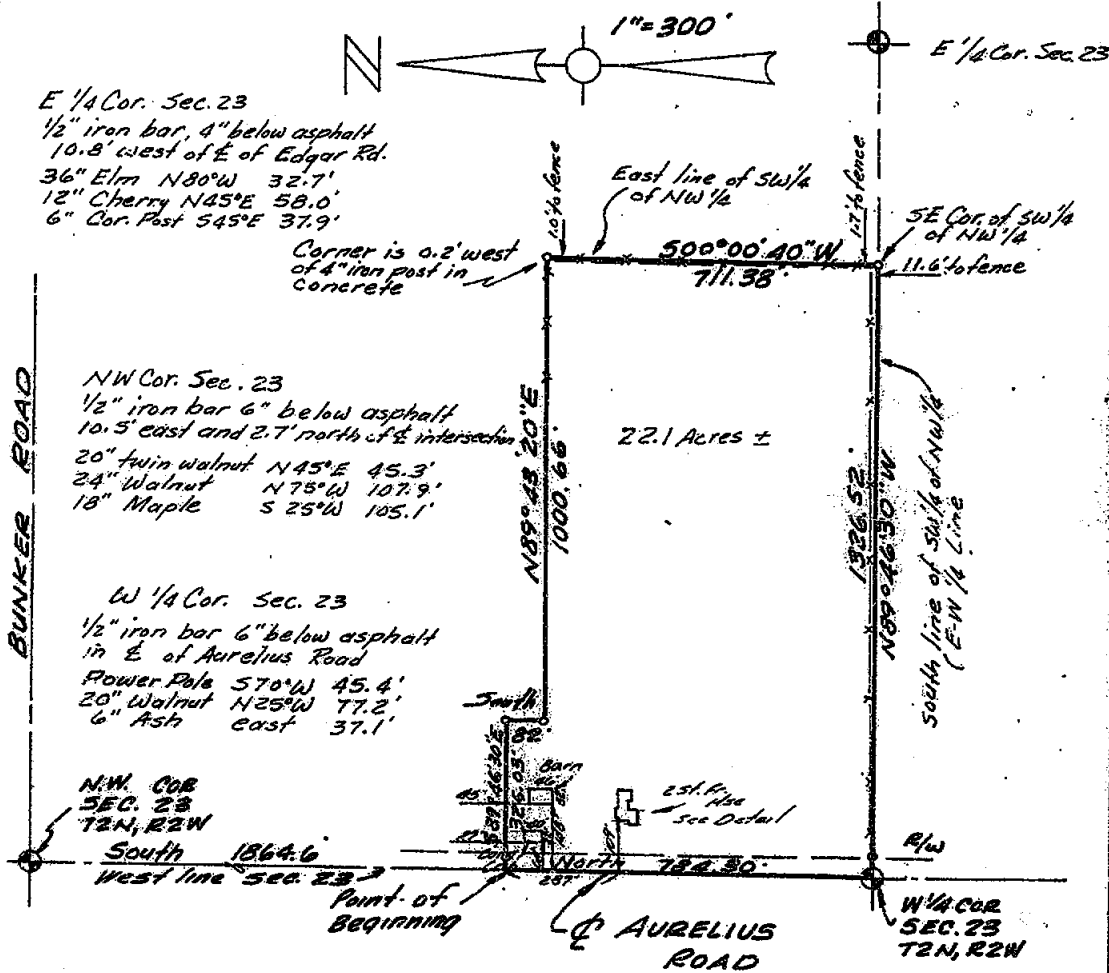 1"=300'
N
E 1/4 Cor. Sec. 23
E 1/4 Cor. Sec. 23
1/2" iron bar, 4" below asphalt
10.8' west of ℄ of Edgar Rd.
36" Elm N80°W 32.7'
12" Cherry N45°E 58.0'
6" Cor. Post S45°E 37.9'
1.0' to fence
East line of SW 1/4
of NW 1/4
1.7' to fence
SE Cor. of SW 1/4
of NW 1/4
Corner is 0.2' west
of 4" iron post in
concrete
S00°00'40"W
711.38'
11.6' to fence
BUNKER ROAD
NW Cor. Sec. 23
1/2" iron bar 6" below asphalt
10.5' east and 2.7' north of ℄ intersection
20" twin walnut N45°E 45.3'
24" Walnut N75°W 107.9'
18" Maple S 25°W 105.1'
22.1 Acres ±
N89°43'20"E
1000.66'
1326.52'
N89°46'30"W
South line of SW 1/4 of NW 1/4
(E-W 1/4 Line
W 1/4 Cor. Sec. 23
1/2" iron bar 6" below asphalt
in ℄ of Aurelius Road
Power Pole S70°W 45.4'
20" Walnut N25°W 77.2'
6" Ash east 37.1'
South
82'
S89°46'30"E
326.03'
Barn
2 st. Fr.
Hse
See Detail
N.W. COR
SEC. 23
T2N, R2W
South 1864.6'
West line Sec. 23
North 784.30'
R/W
Point of
Beginning
℄ AURELIUS
ROAD
W 1/4 COR
SEC. 23
T2N, R2W